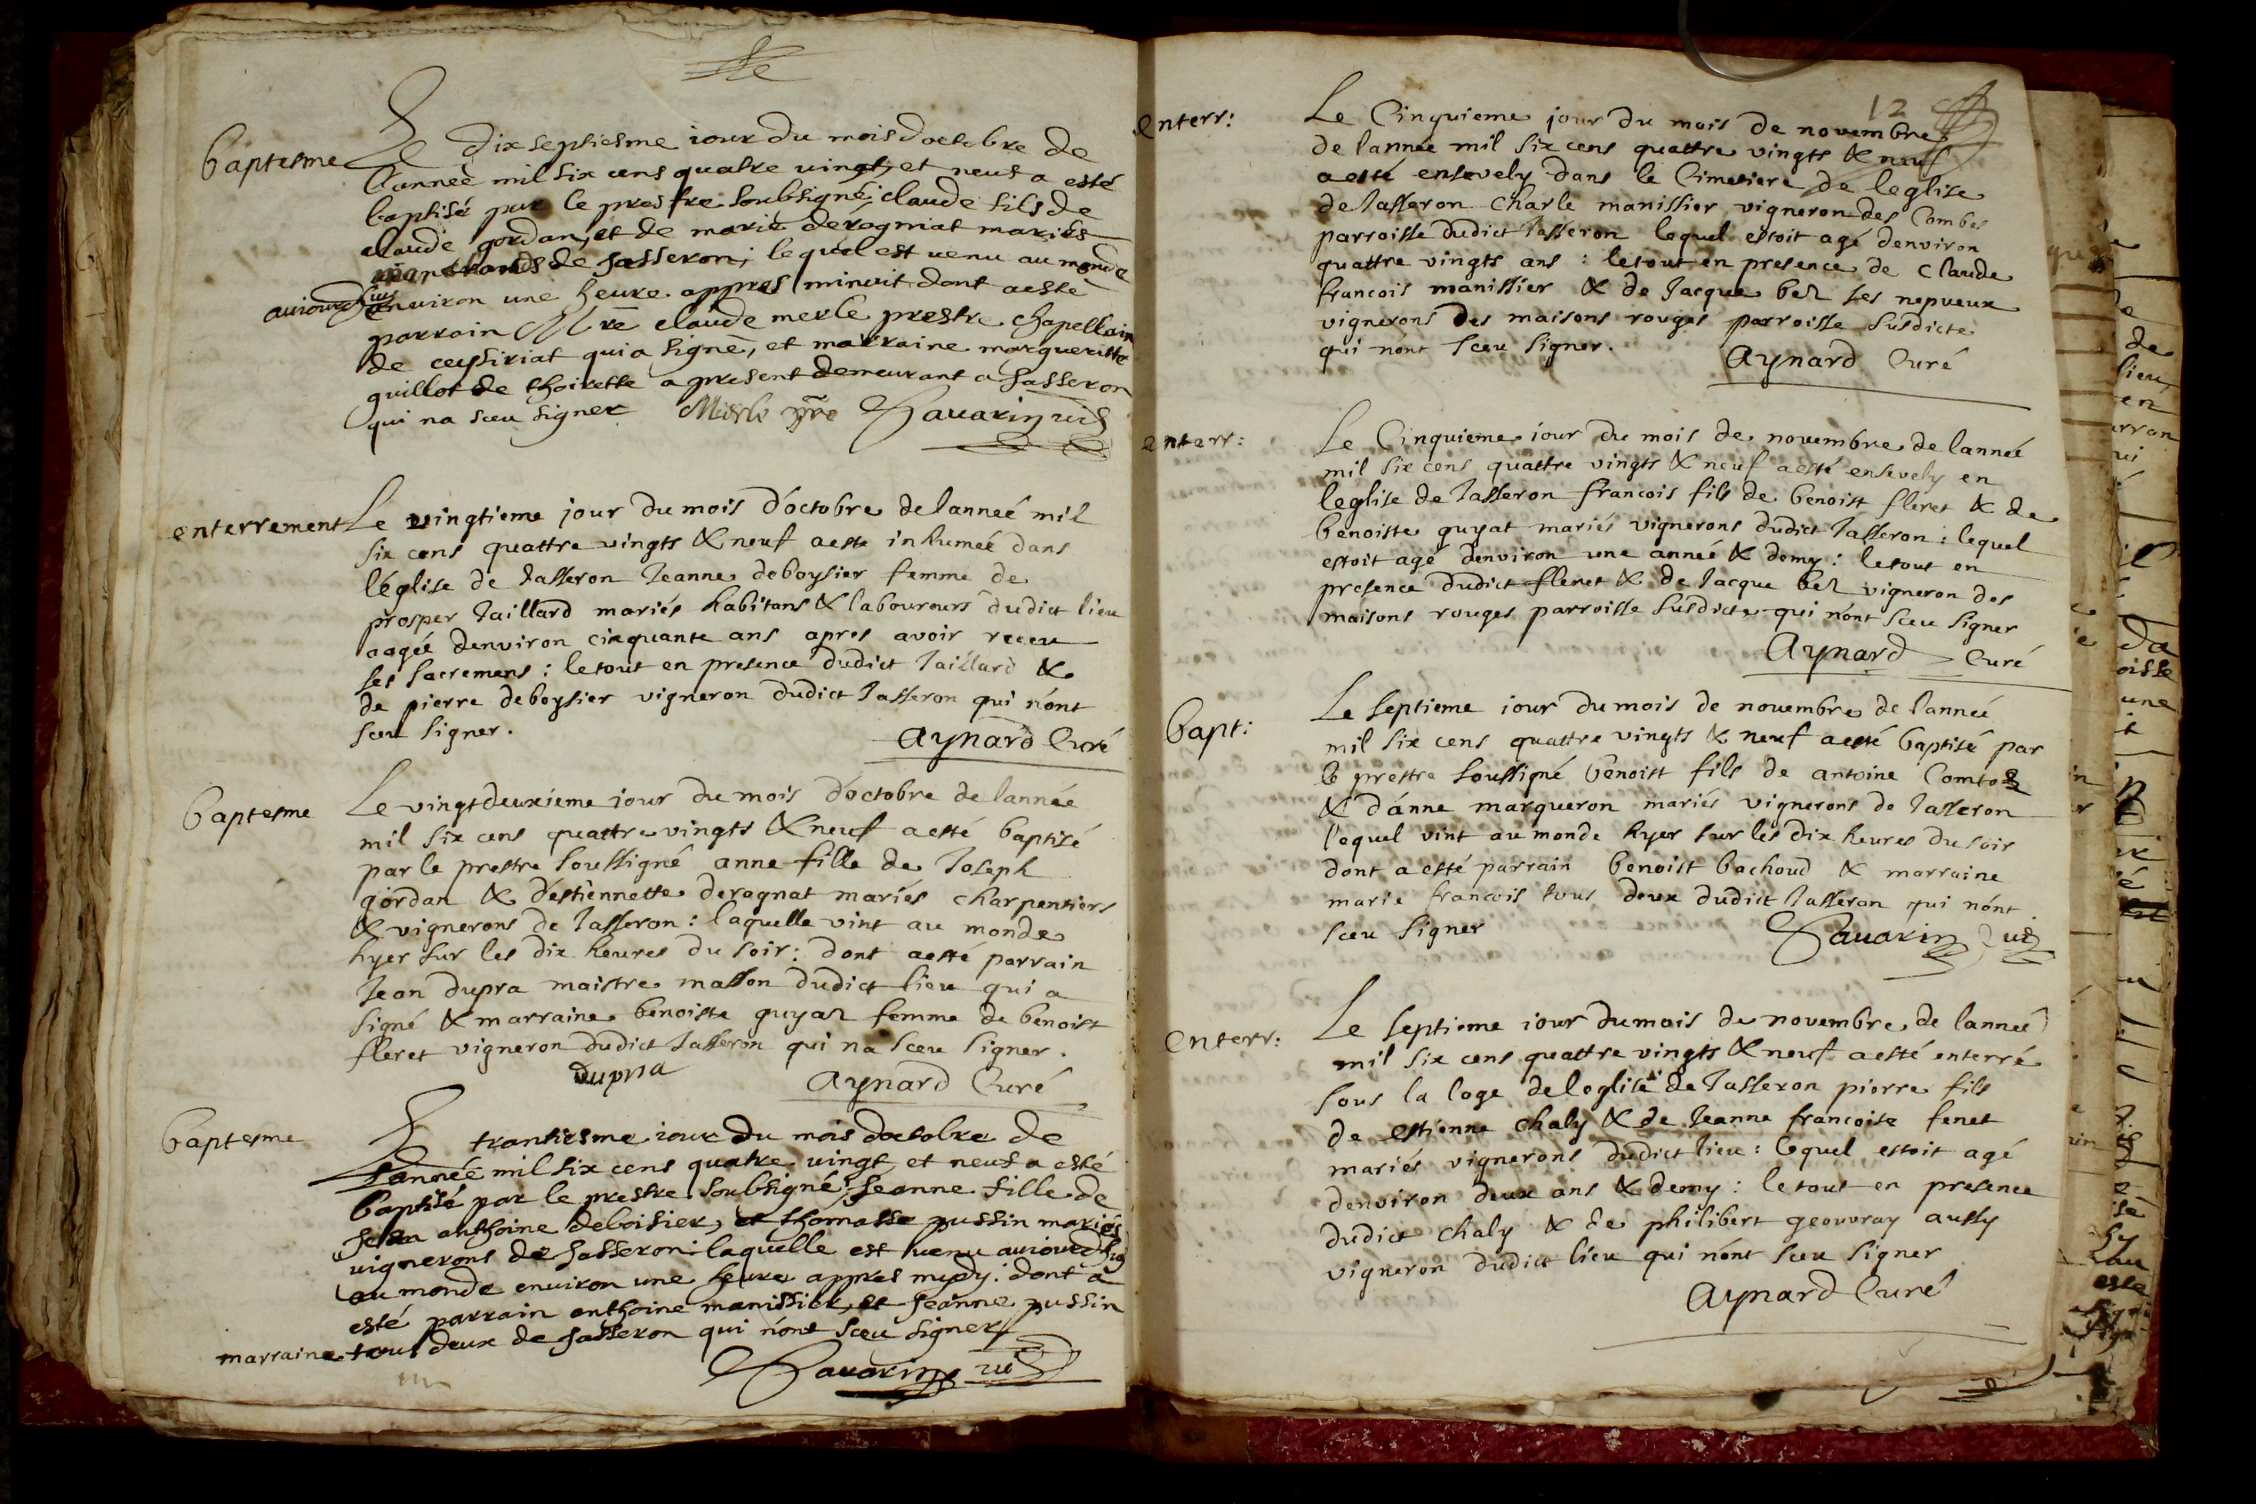 baptesme
Le dixseptiesme iour du mois doctobre de
lannee mil six cens quatre vingt et neuf a esté
baptisé par le prestre soubsigné; claude fils de
claude gordan, et de marie derogniat mariés
marchands de Jasseron; lequel est venu au monde
auiourdhuy
environ une heure appres minuit dont a esté
parrain Mre claude merle prestre chapellain
de ceysiriat qui a signé, et marraine marguerite
guillot de thoirette a present demeurant a Jasseron
qui na sceu signer Merle pre Savarin vic
enterrement
Le vingtieme jour du mois d'octobre de lanneé mil
six cens quattre vingts & neuf a esté inhumeé dans
l'église de Jasseron Jeanne deboysier femme de
prosper Taillard mariés habitans & laboureurs dudict lieu
aagée denviron cinquante ans apres avoir receu
ses sacremens : le tout en presence dudict Taillard &
de pierre deboysier vigneron dudict Jasseron qui n'ont
sceu signer.
Aynard Curé
baptesme
Le vingtdeuxieme jour du mois d'octobre de lannée
mil six cens quattre vingts & neuf a esté baptisé
par le prestre soussigné anne fille de Joseph
gordan & d'estiennette deragnat mariés charpentiers
& vignerons de Jasseron : laquelle vint au monde
hyer sur les dix heures du soir : dont a esté parrain
Jean dupra maistre masson dudict lieu qui a
signé & marraine benoiste guyat femme de benoist
fleret vigneron dudict Jasseron qui na sceu signer.
dupra
Aynard Curé
baptesme
Le trantiesme iour du mois doctobre de
lannée mil six cens quatre vingt, et neuf a esté
baptisé par le prestre soubsigné; Jeanne fille de
Jean anthoine deboisier, et thomasse pussin mariés
vignerons de Jasseron: laquelle est venu auiourdhuy
au monde environ une heure appres midy: dont a
esté parrain anthoine manissier, et Jeanne pussin
marraine tous deux de Jasseron qui n'ont sceu signer
Savarin vic
12
enterr:
Le Cinquieme jour du mois de novembre
de lannée mil six cens quattre vingts & neuf
a esté ensevely dans le Cimetiere de leglise
de Jasseron Charle manissier vigneron des Combes
parroisse dudict Jasseron lequel estoit agé denviron
quattre vingts ans : le tout en presence de Claude
francois manissier & de Jacque bel ses nepveux
vignerons des maisons rouges parroisse susdicte
qui n'ont sceu signer.
Aynard Curé
enterr:
Le Cinquieme iour du mois de novembre de lanneé
mil six cens quattre vingts & neuf a esté ensevely en
leglise de Jasseron francois fils de benoist fleret & de
benoiste guyat mariés vignerons dudict Jasseron : lequel
estoit agé denviron une anneé & demy : le tout en
presence dudict fleret & de Jacque bel vigneron des
maisons rouges parroisse susdicte qui n'ont sceu signer
Aynard Curé
bapt:
Le septieme iour du mois de novembre de lanneé
mil six cens quattre vingts & neuf a esté baptisé par
le prestre soussigné benoist fils de antoine Comtoz
& d'anne marqueron mariés vignerons de Jasseron
lequel vint au monde hyer sur les dix heures du soir
dont a esté parrain benoist bachoud & marraine
marie francois tous deux dudict Jasseron qui n'ont
sceu signer
Savarin vic
enterr:
Le septieme iour du mais de novembre de lanneé
mil six cens quattre vingts & neuf a esté enterré
sous la loge de leglise de Jasseron pierre fils
de estienne chaly & de Jeanne francoise fenet
mariés vignerons dudict lieu : lequel estoit agé
denviron deux ans & demy : le tout en presence
dudict chaly & de philibert geouvray aussy
vigneron dudict lieu qui n'ont sceu signer
Aynard Curé